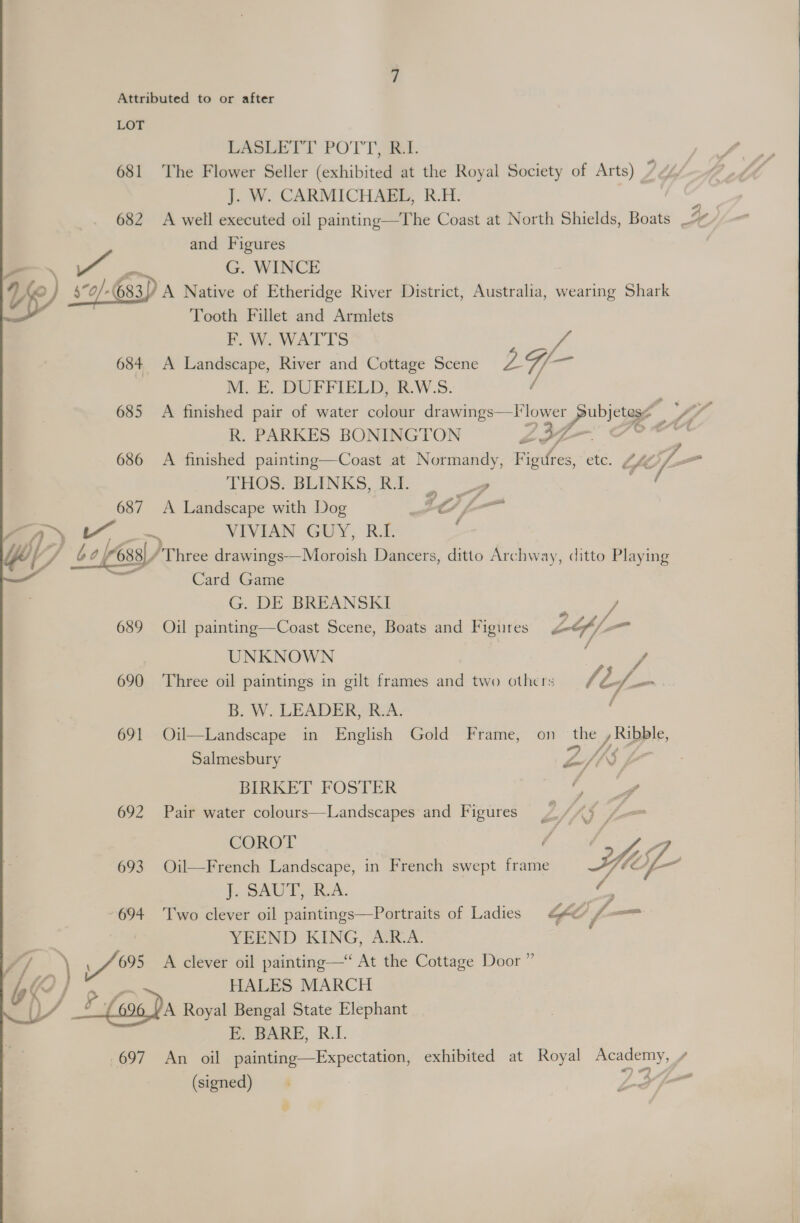 7
Attributed to or after
LOT
LASLETT POTT, R.I.
681 The Flower Seller (exhibited at the Royal Society of Arts)
J. W. CARMICHAEL, R.H.
682 A well executed oil painting—The Coast at North Shields, Boats
and Figures
G. WINCE
50/- 683 A Native of Etheridge River District, Australia, wearing Shark
Tooth Fillet and Armlets
F. W. WATTS
684 A Landscape, River and Cottage Scene
M. E. DUFFIELD, R.W.S.
685 A finished pair of water colour drawings—Flower Subjects
R. PARKES BONINGTON
686 A finished painting—Coast at Normandy, Figures, etc.
THOS. BLINKS, R.I.
687 A Landscape with Dog
VIVIAN GUY, R.I.
688 Three drawings—Moroish Dancers, ditto Archway, ditto Playing
Card Game
G. DE BREANSKI
689 Oil painting—Coast Scene, Boats and Figures
UNKNOWN
690 Three oil paintings in gilt frames and two others
B. W. LEADER, R.A.
691 Oil—Landscape in English Gold Frame, on the Ribble,
Salmesbury
BIRKET FOSTER
692 Pair water colours—Landscapes and Figures
COROT
693 Oil—French Landscape, in French swept frame
J. SAUT, R.A.
694 Two clever oil paintings—Portraits of Ladies
YEEND KING, A.R.A.
695 A clever oil painting—“ At the Cottage Door ”
HALES MARCH
696 A Royal Bengal State Elephant
E. BARE, R.I.
697 An oil painting—Expectation, exhibited at Royal Academy,
(signed)